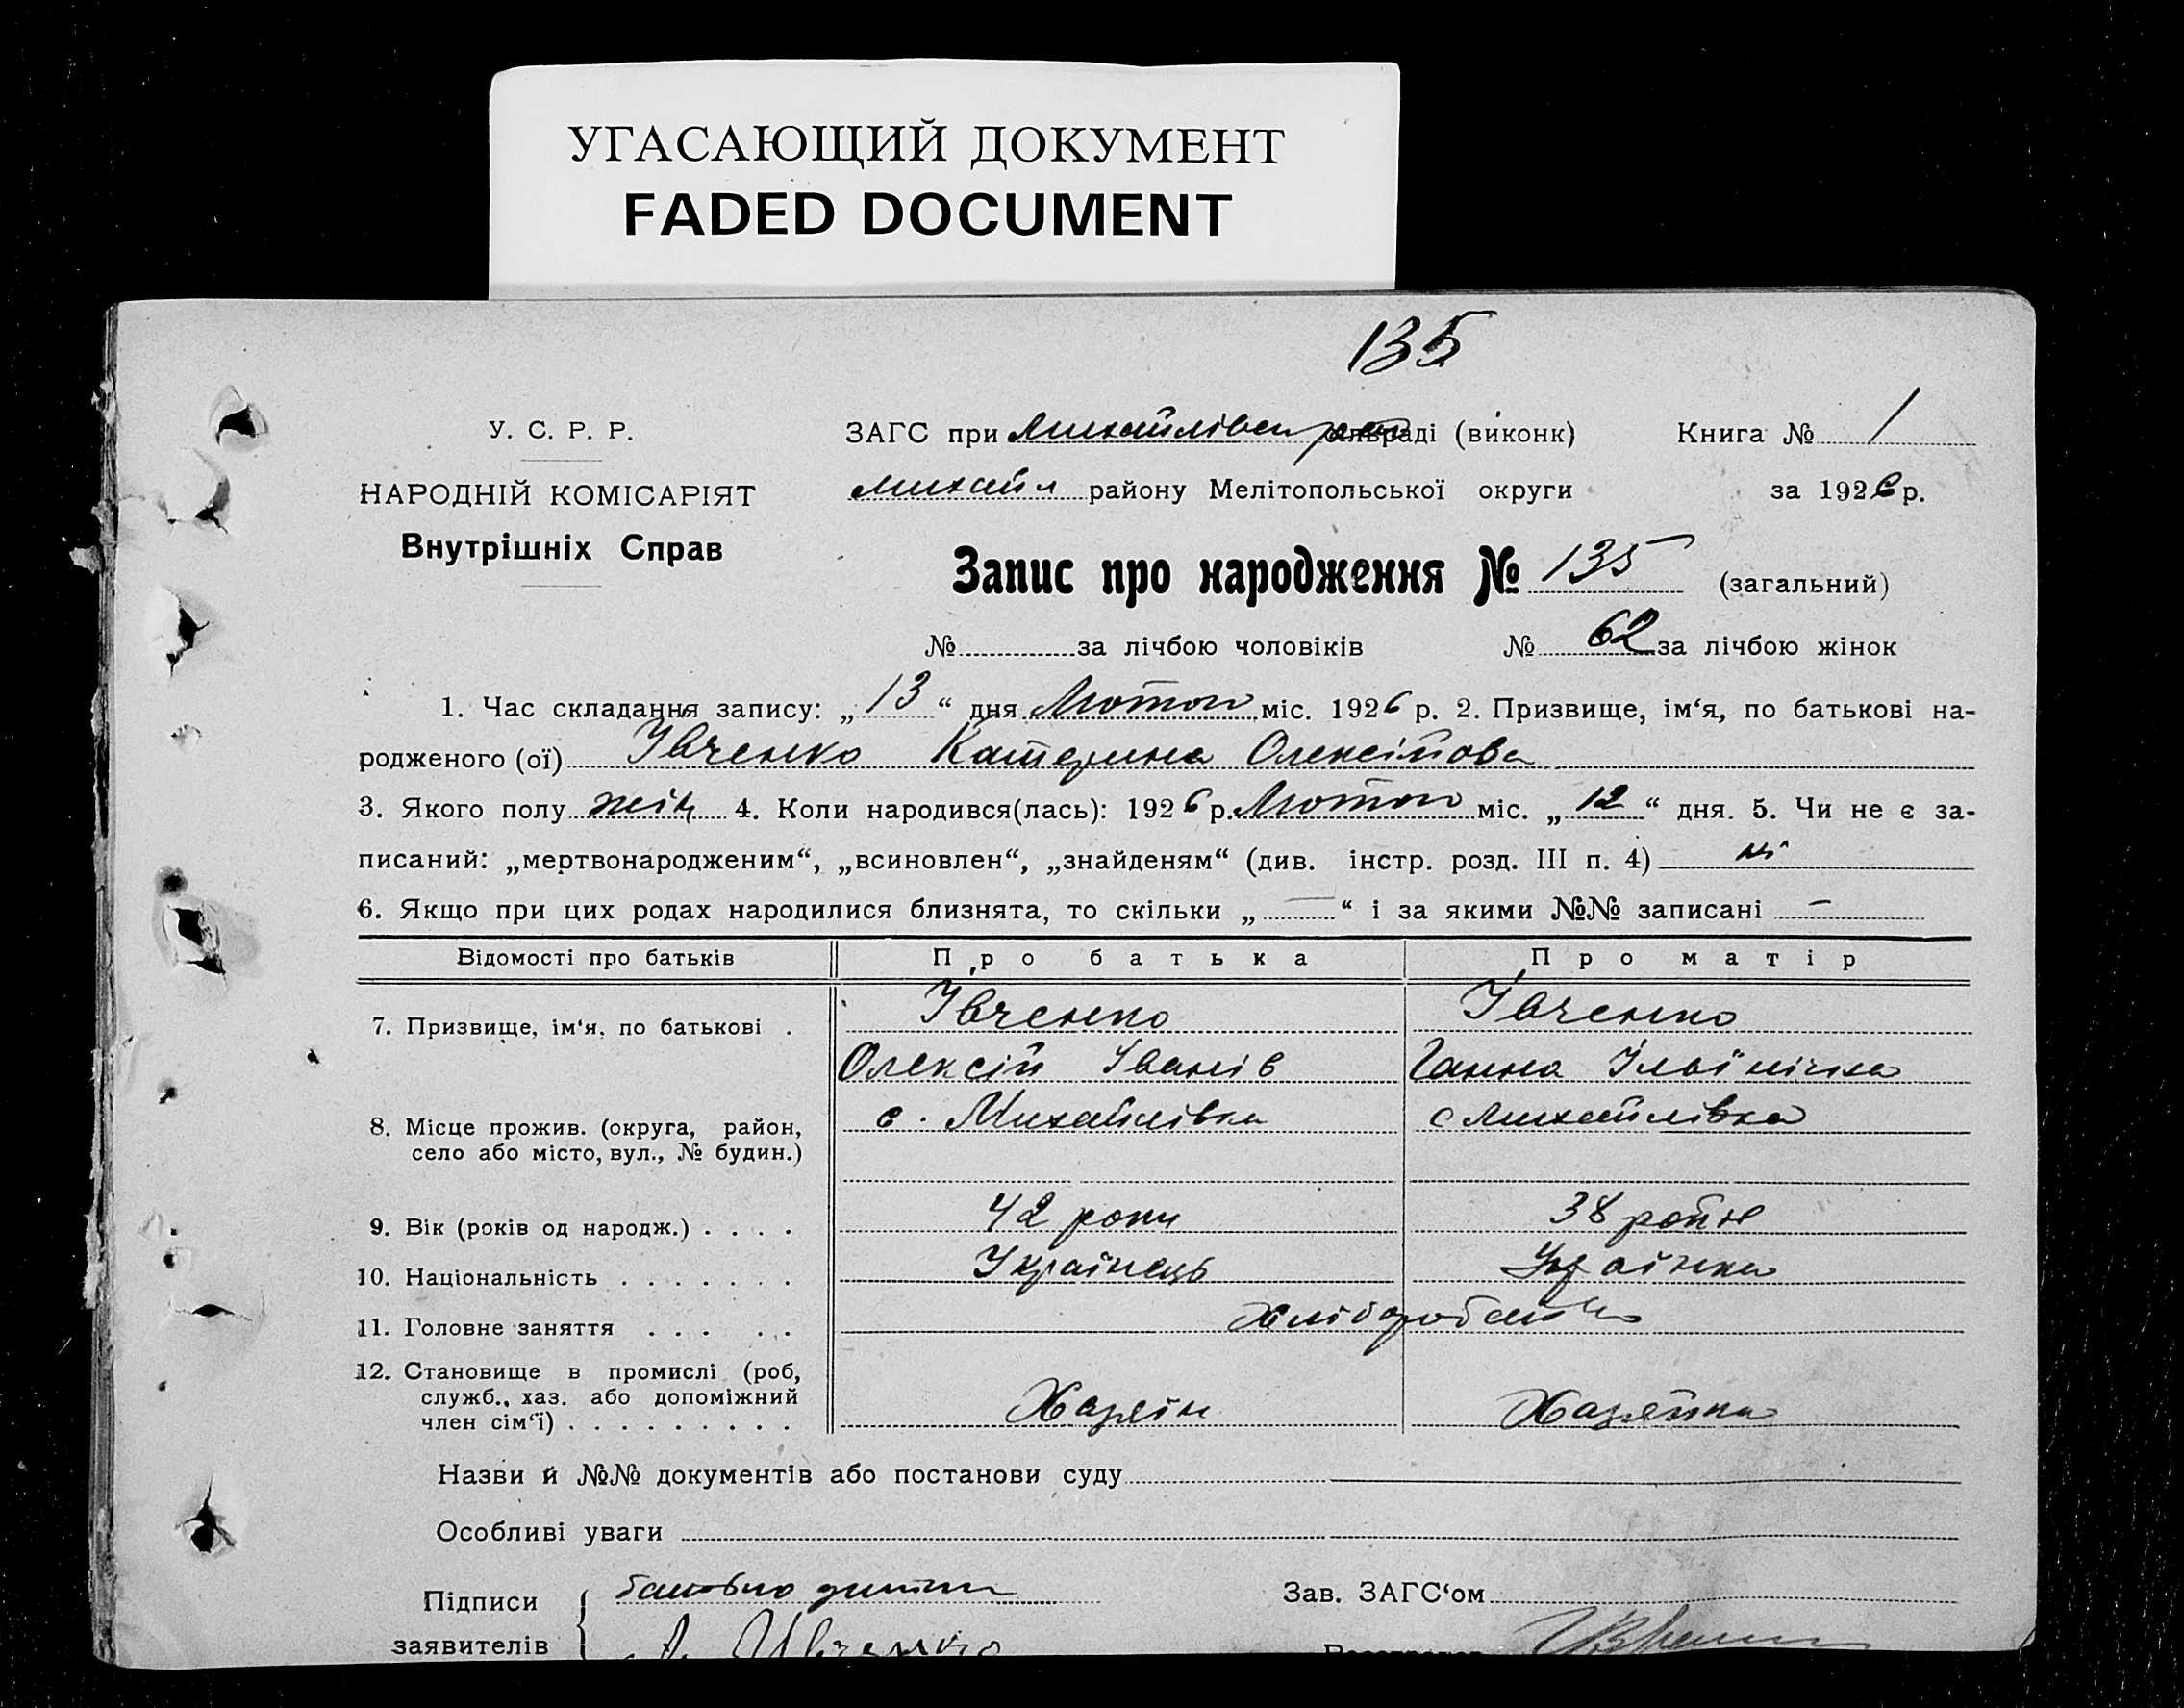 УГАСАЮЩИЙ ДОКУМЕНТ
FADED DOCUMENT
135
У. С. Р. Р.
НАРОДНІЙ КОМІСАРІЯТ
Внутрішніх Справ
ЗАГС при Михайлівськ раді (виконк) Книга № 1
Михайл району Мелітопольської округи за 1926 р.
Запис про народження № 135 (загальний)
№ за лічбою чоловіків № 62 за лічбою жінок
1. Час складання запису: „13“ дня Лютого міс. 1926 р. 2. Призвище, ім‘я, по батькові на-
родженого (ої) Івченко Катерина Олексійова
3. Якого полу жін 4. Коли народився(лась): 1926 р. Лютого міс. „12“ дня. 5. Чи не є за-
писаний: „мертвонародженим“, „всиновлен“, „знайденям“ (див. інстр. розд. III п. 4) ні
6. Якщо при цих родах народилися близнята, то скільки „—“ і за якими №№ записані —
Відомості про батьків Про батька Про матір
7. Призвище, ім‘я, по батькові . Івченко Івченко
Олексій Іванів Ганна Ільїнічна
8. Місце прожив. (округа, район, с. Михайлівка с Михайлівка
село або місто, вул., № будин.)
9. Вік (років од народж.) . . . . 42 роки 38 років
10. Національність . . . . . . . Українець Українка
11. Головне заняття . . . . . Хліборобство
12. Становище в промислі (роб,
служб., хаз. або допоміжний Хазяїн Хазяйка
член сім‘ї) . . . . . . . . .
Назви й №№ документів або постанови суду
Особливі уваги
Підписи батько дитини Зав. ЗАГС‘ом
заявителів А. Ивченко